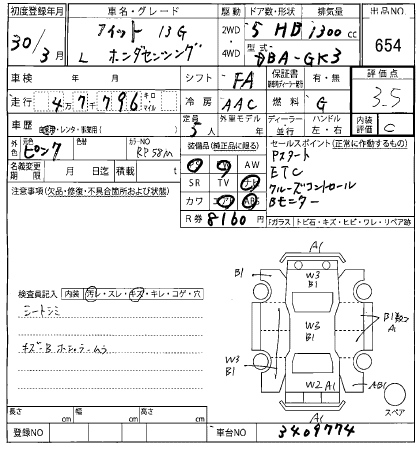 初度登録年月 車名・グレード 駆動 ドア数・形状 排気量 出品NO
30年3月 フィット 13G 2WD 5 HB 1300cc 654
L ホンダセンシング 4WD 型式 DBA-GK3
車検 年 月 シフト FA 保証書 有・無 評価点 3.5
走行 47796 キロ マイル 冷房 AAC 燃料 G
車歴 自家用・レンタ・事業用( ) 定員 5人 外車モデル 年 ディーラー 並行 ハンドル 左・右 内装評価 C
外色 元色 ピンク 色替 カラーNO RP58M 装備品(純正品に限る) セールスポイント(正常に作動するもの)
名義変更期限 月 日迄 積載 t PS PW AW
SR TV ナビ
カワ エアB ABS
R券 8160円
Pスタート
ETC
クルーズコントロール
Bモニター
注意事項(欠品・修復・不具合箇所および状態)
ガラス トビ石・キズ・ヒビ・ワレ・リペア跡
A1
B1 W3 B1
W3 B1
W3 B1
W2 A1
AB1
A1
スペア
検査員記入 内装 汚レ・スレ・キズ・キレ・コゲ・穴
シートシミ
キズ・B ホシュラームラ
長さ cm 幅 cm 高さ cm
登録NO 車台NO 3409774